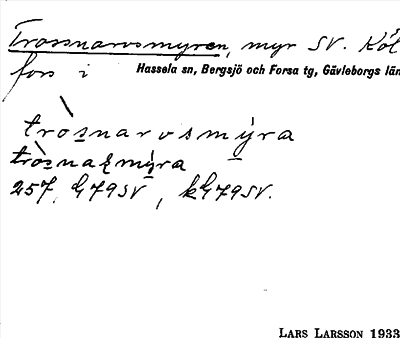 Trossnarvsmyren, myr SV. Köl
fors i Hassela sn, Bergsjö och Forsa tg, Gävleborgs län
tròsnarvsmýra
tròsnaʂmýra
257, G79SV, kG79SV.
LARS LARSSON 1933